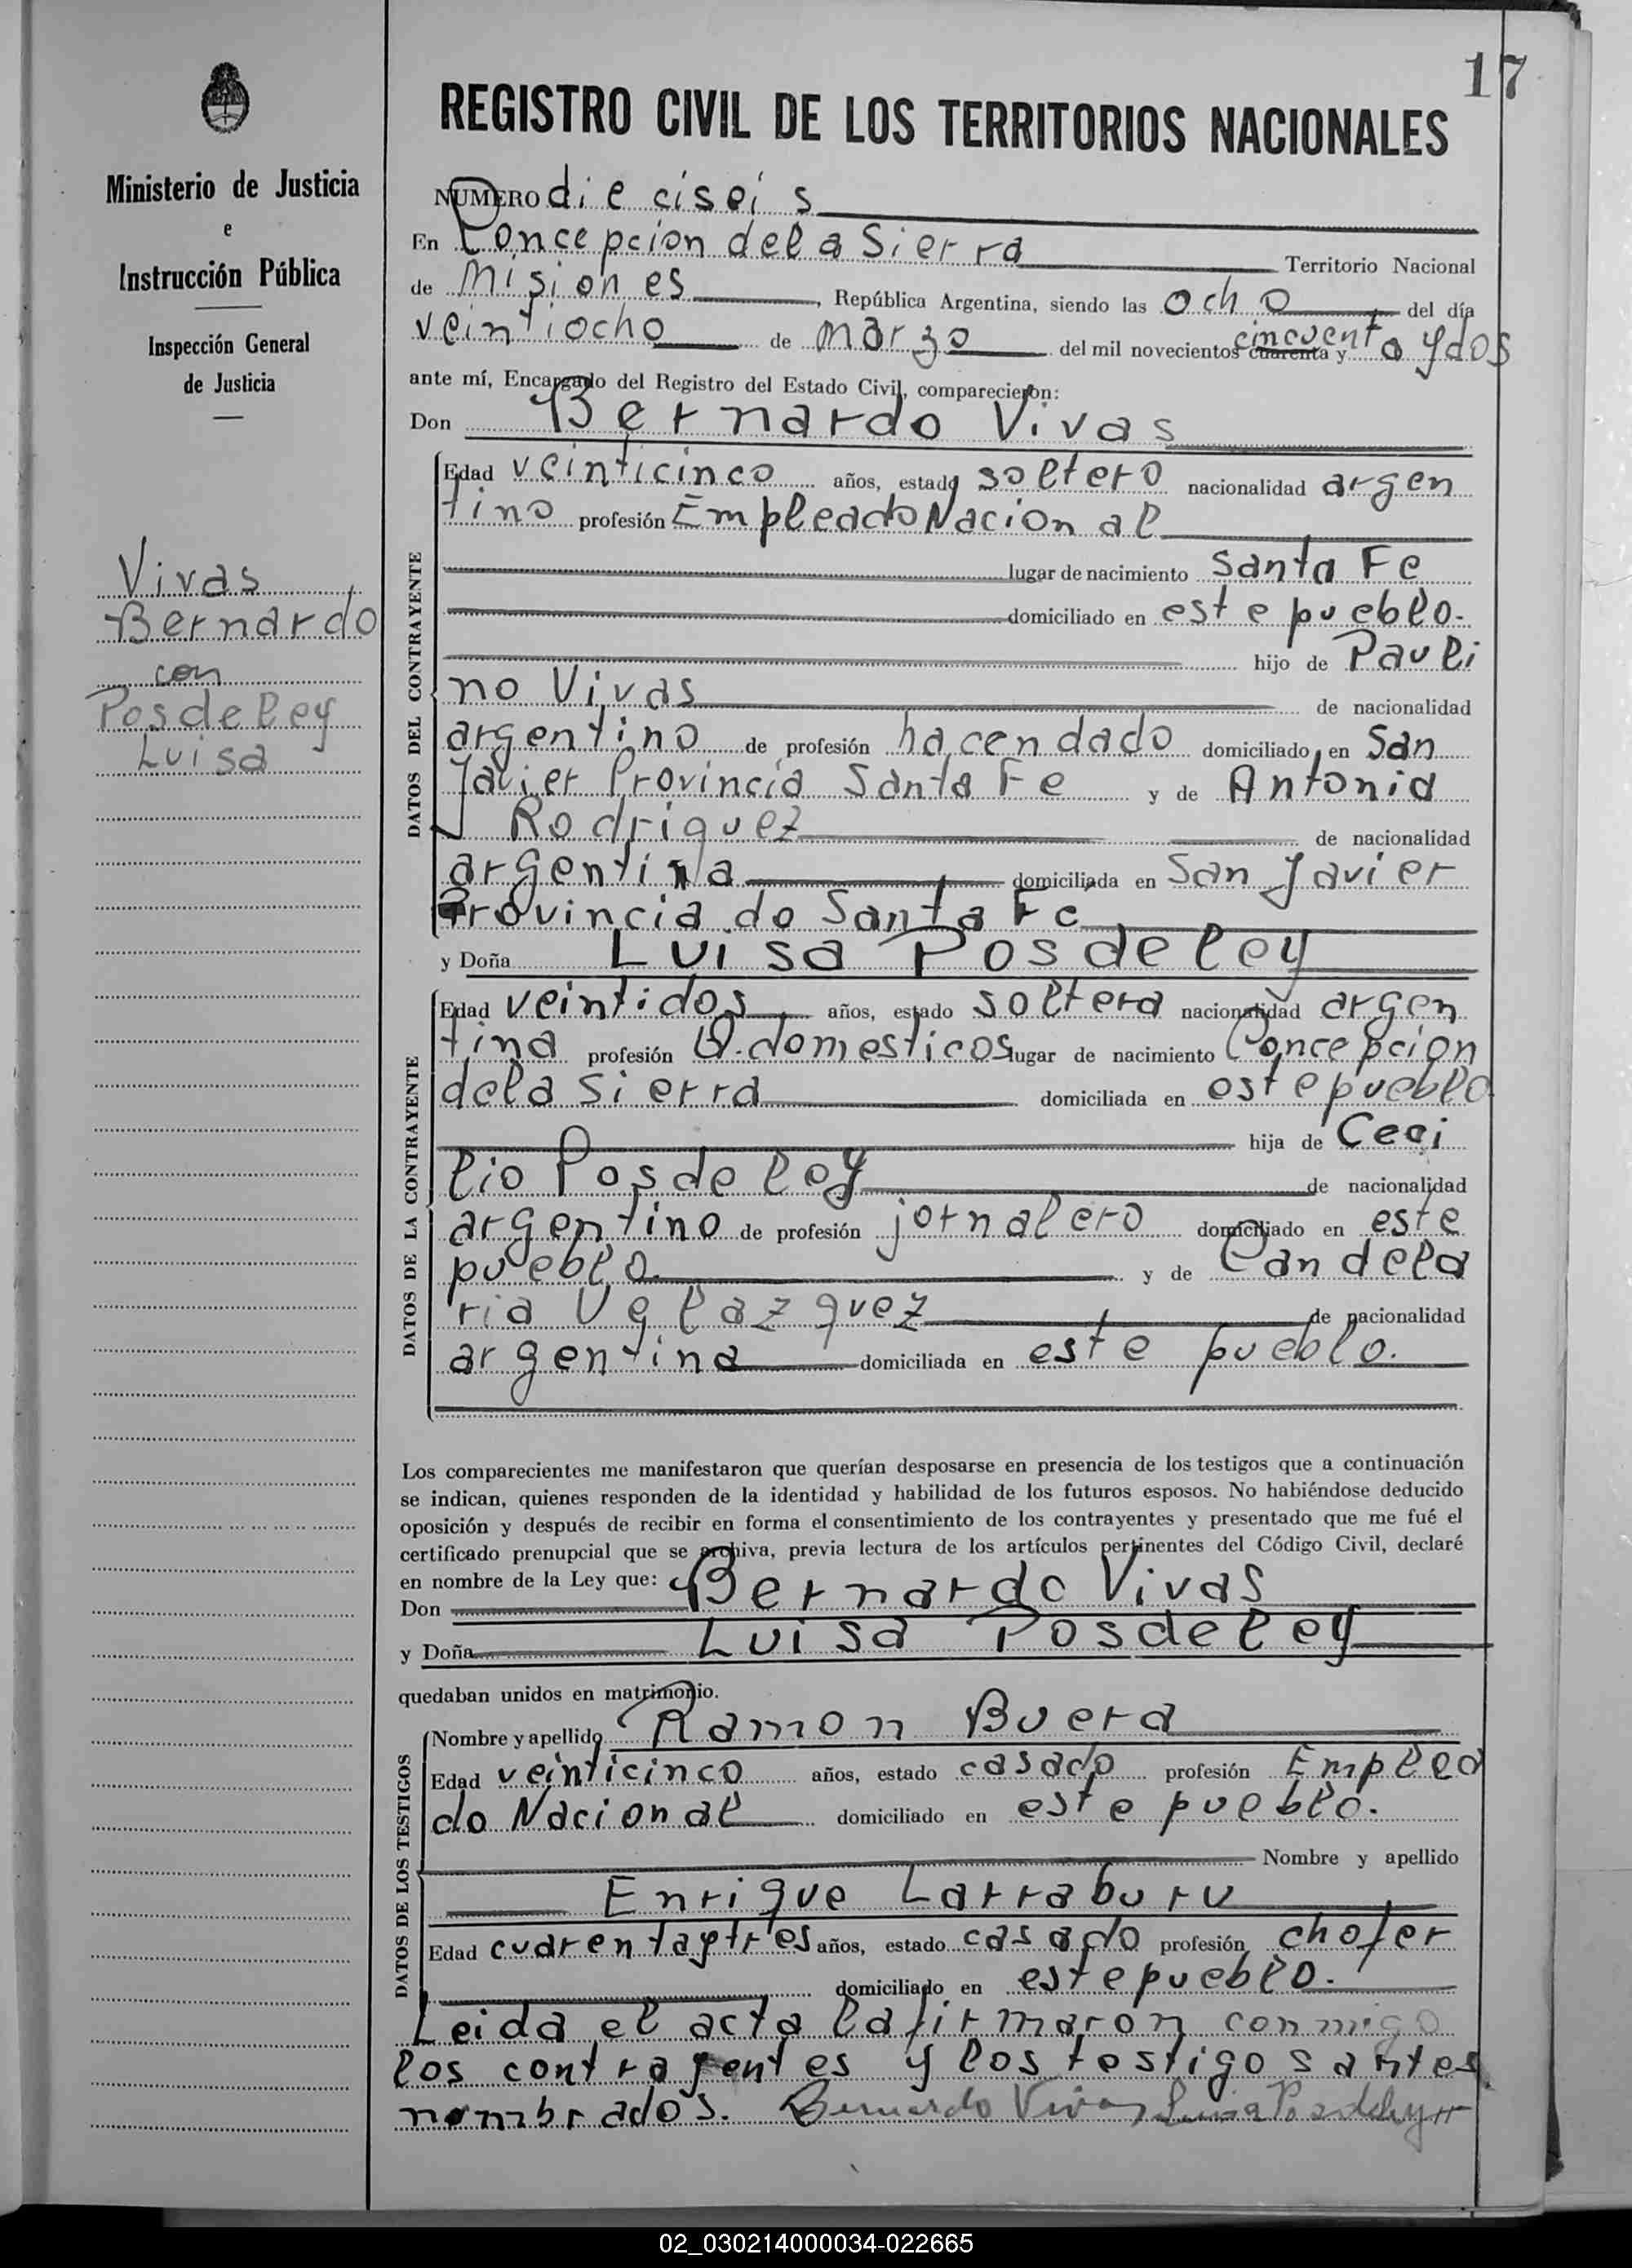 17
REGISTRO CIVIL DE LOS TERRITORIOS NACIONALES
Ministerio de Justicia
e
Instrucción Pública
Inspección General
de Justicia
Vivas
Bernardo
con
Posdeley
Luisa
NUMERO dieciseis
En Concepcion de la Sierra Territorio Nacional
de Misiones, República Argentina, siendo las ocho del día
veintiocho de marzo del mil novecientos cuarenta y cincuenta y dos
ante mí, Encargado del Registro del Estado Civil, comparecieron:
Don Bernardo Vivas
DATOS DEL CONTRAYENTE
Edad veinticinco años, estado soltero nacionalidad argen
tino profesión Empleado Nacional
lugar de nacimiento Santa Fe
domiciliado en este pueblo.
hijo de Pauli
no Vivas de nacionalidad
argentino de profesión hacendado domiciliado en San
Javier Provincia Santa Fe y de Antonia
Rodriguez de nacionalidad
argentina domiciliada en San Javier
Provincia de Santa Fe
y Doña Luisa Posdeley
DATOS DE LA CONTRAYENTE
Edad veintidos años, estado soltera nacionalidad argen
tina profesión Q. domesticos lugar de nacimiento Concepcion
de la Sierra domiciliada en este pueblo
hija de Ceci
lio Posdeley de nacionalidad
argentino de profesión jornalero domiciliado en este
pueblo. y de Candela
ria Velazquez de nacionalidad
argentina domiciliada en este pueblo.
Los comparecientes me manifestaron que querían desposarse en presencia de los testigos que a continuación
se indican, quienes responden de la identidad y habilidad de los futuros esposos. No habiéndose deducido
oposición y después de recibir en forma el consentimiento de los contrayentes y presentado que me fué el
certificado prenupcial que se archiva, previa lectura de los artículos pertinentes del Código Civil, declaré
en nombre de la Ley que:
Don Bernardo Vivas
y Doña Luisa Posdeley
quedaban unidos en matrimonio.
DATOS DE LOS TESTIGOS
Nombre y apellido Ramon Buera
Edad veinticinco años, estado casado profesión Emplea
do Nacional domiciliado en este pueblo.
Nombre y apellido
Enrique Larraburu
Edad cuarenta y tres años, estado casado profesión chofer
domiciliado en este pueblo.
Leida el acta la firmaron conmigo
los contrayentes y los testigos antes
nombrados. Bernardo Vivas Luisa Posdeley
02_030214000034-022665